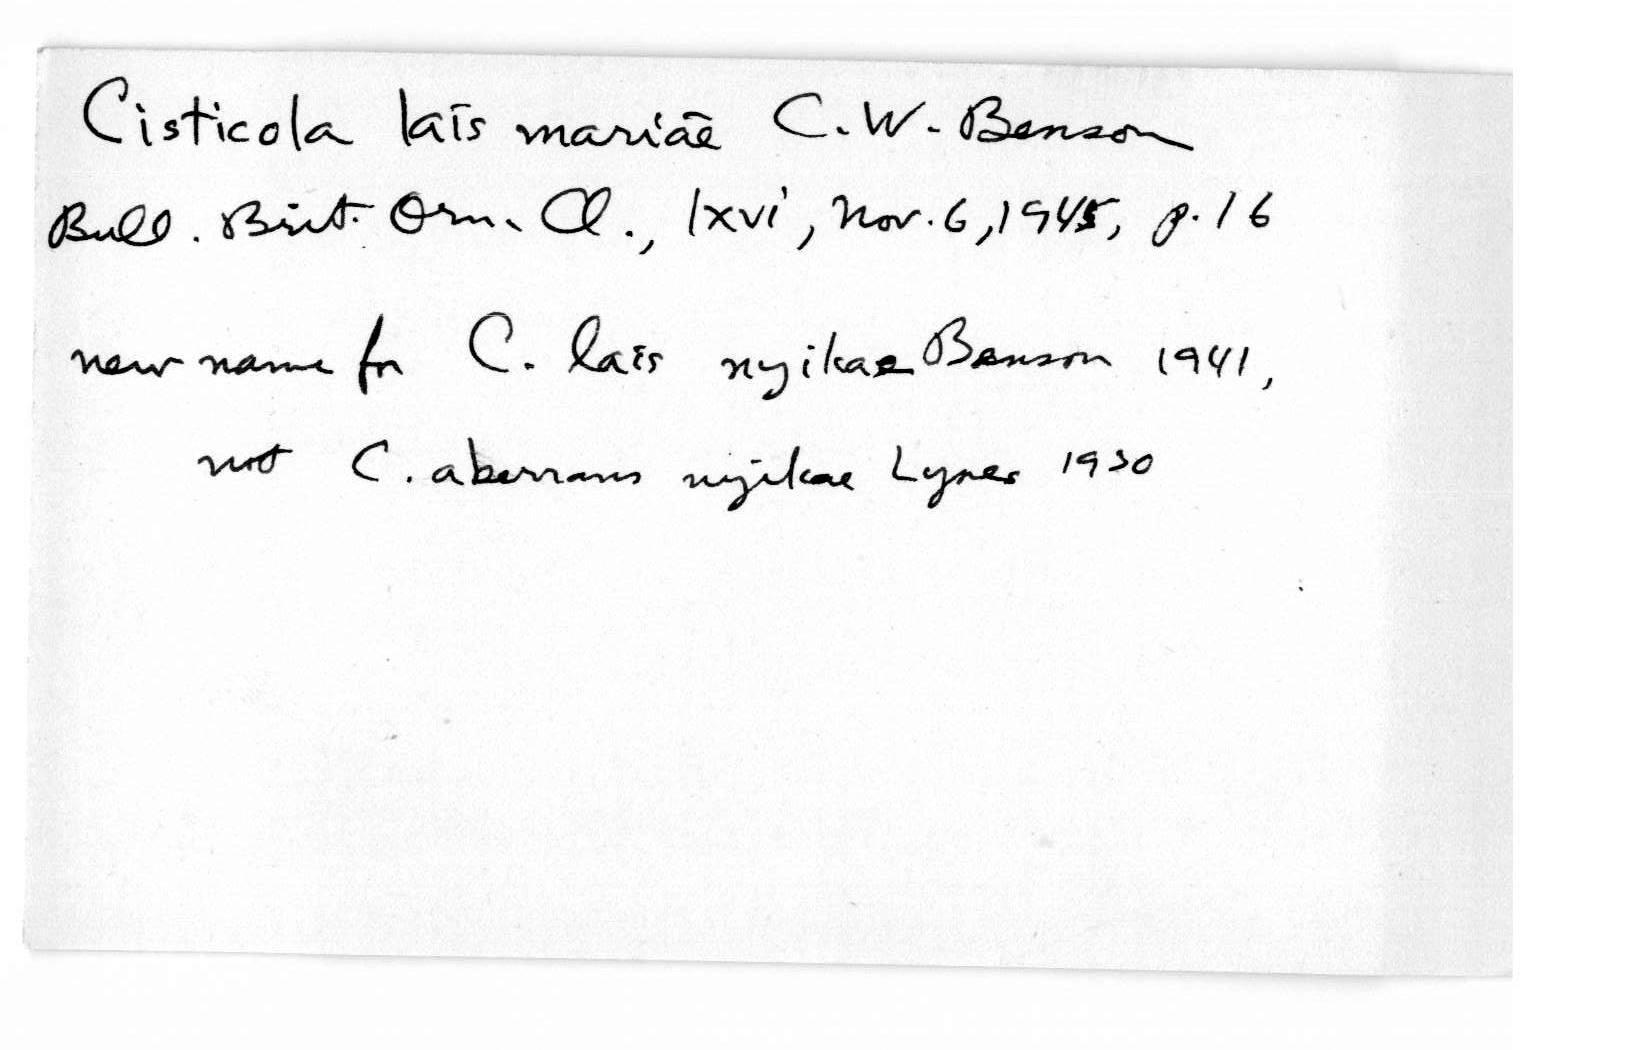 Cisticola laïs mariae C. W. Benson
Bull. Brit. Orn. Cl., lxvi, Nov. 6, 1945, p. 16
new name for C. laïs nyikae Benson 1941,
not C. aberrans nyikae Lynes 1930